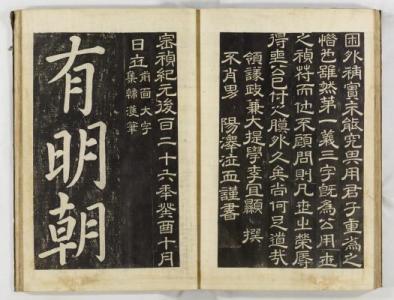 困外補實未能究其用君子重爲之
惜也雖然第一義三字旣爲公用世
之禎符而他不顧問則凡世之榮辱
得喪公已付之膜外久矣尚何足道哉
領議政兼大提學李宜顯 撰
不肖男 陽澤泣血謹書
崇禎紀元後百二十六年癸酉十月
日立 前面大字
集韓濩筆
有明朝